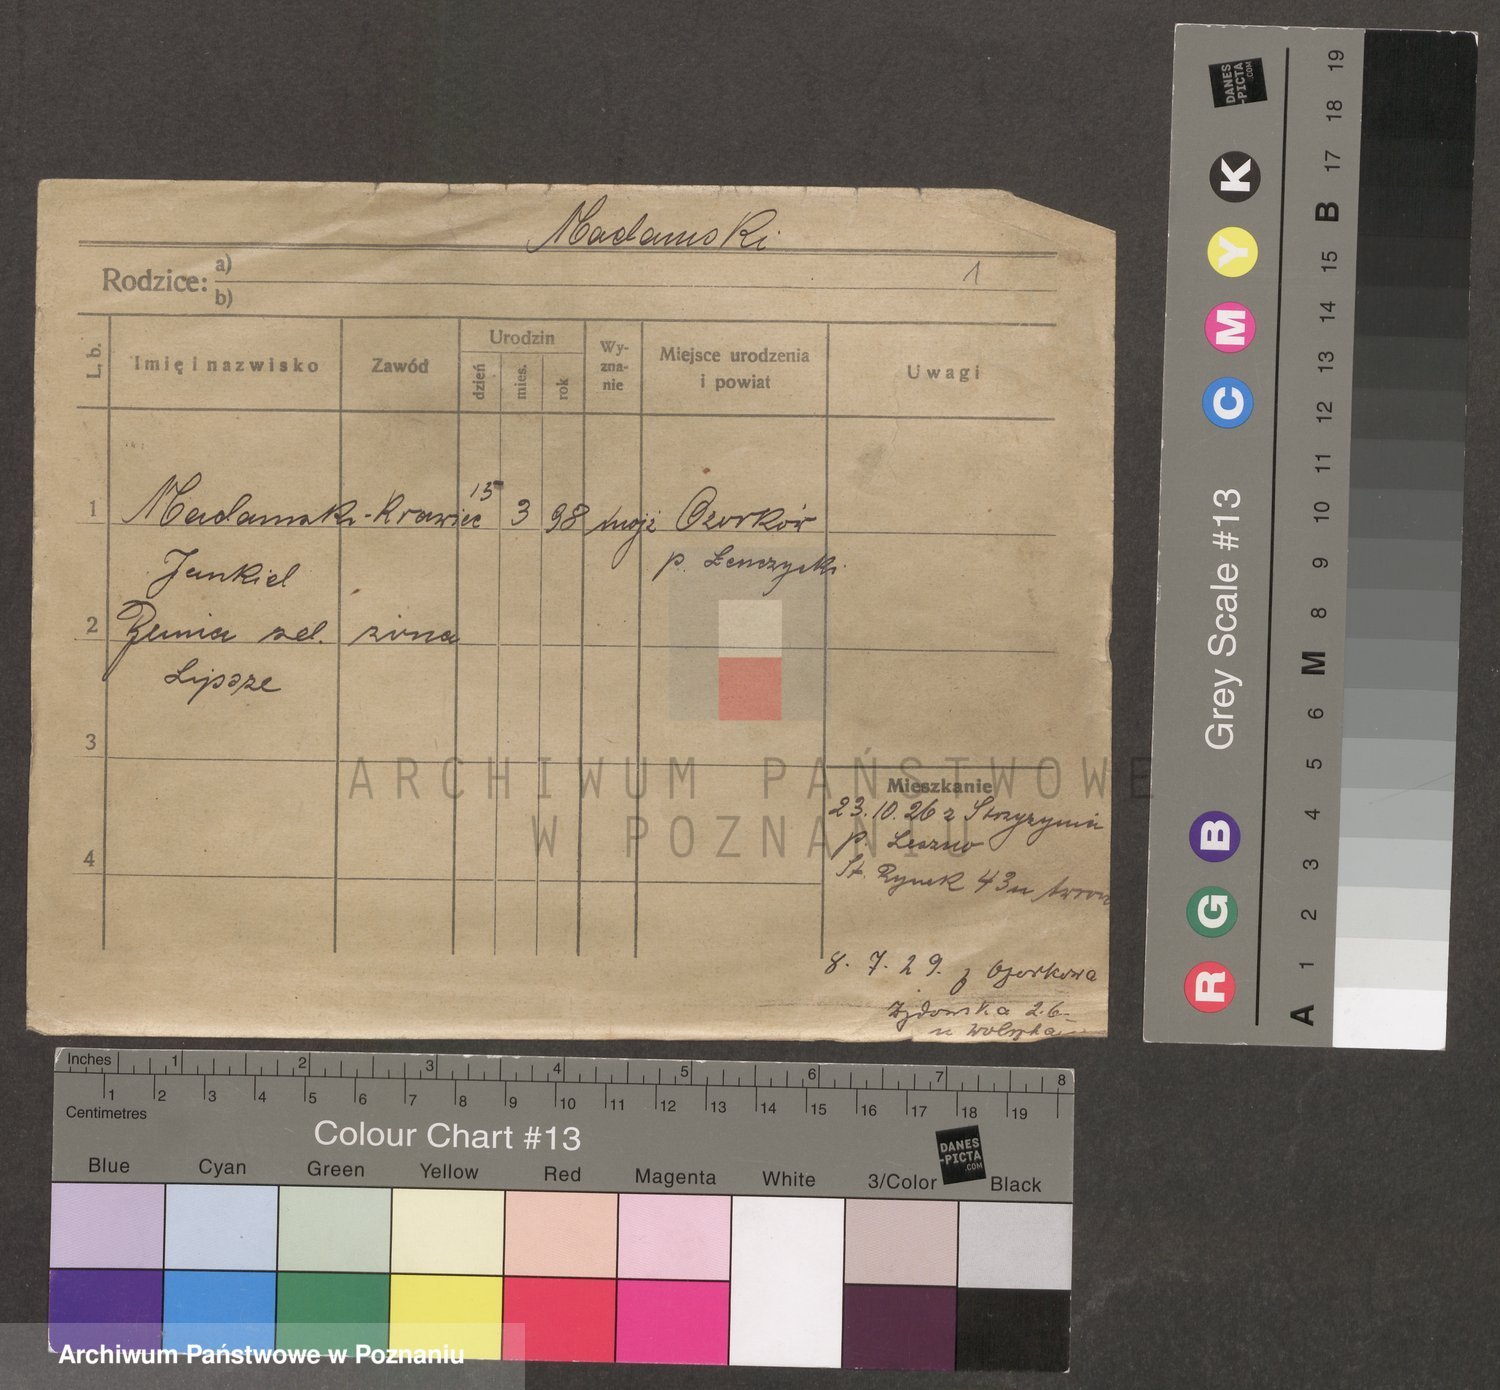 Madamski
Rodzice: a)
b)
1
L. b.
Imię i nazwisko
Zawód
Urodzin
dzień
mies.
rok
Wy-
zna-
nie
Miejsce urodzenia
i powiat
Uwagi
1 Madamski - Krawiec 15 3 98 mojż Ozorków
Jankiel p. Łenczycki
2 żona
Lipsze
3
4
Mieszkanie
23.10.26 z
p. Leszno
St. Rynek 43 u
8. 7. 29. z Ozorkowa
Żydowska 26
u
ARCHIWUM PAŃSTWOWE
W POZNANIU
DANES
-PICTA
.COM
K
Y
M
C
Grey Scale #13
B
G
R
A 1 2 3 4 5 6 M 8 9 10 11 12 13 14 15 B 17 18 19
Inches 1 2 3 4 5 6 7 8
Centimetres 1 2 3 4 5 6 7 8 9 10 11 12 13 14 15 16 17 18 19
Colour Chart #13
DANES
-PICTA
.COM
Blue Cyan Green Yellow Red Magenta White 3/Color Black
Archiwum Państwowe w Poznaniu